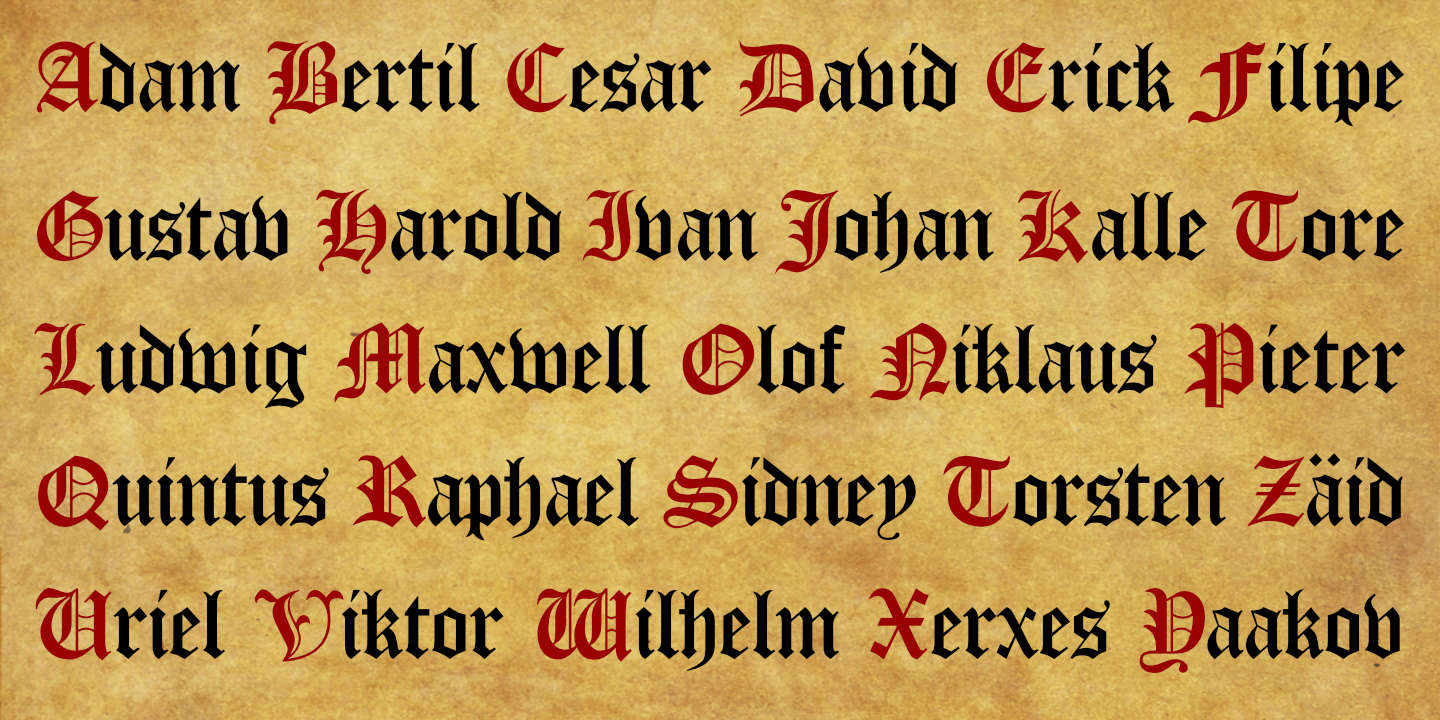 Adam Bertil Cesar David Erick Filipe
Gustav Harold Ivan Johan Kalle Tore
Ludwig Maxwell Olof Niklaus Pieter
Quintus Raphael Sidney Torsten Zäid
Uriel Viktor Wilhelm Xerxes Yaakov